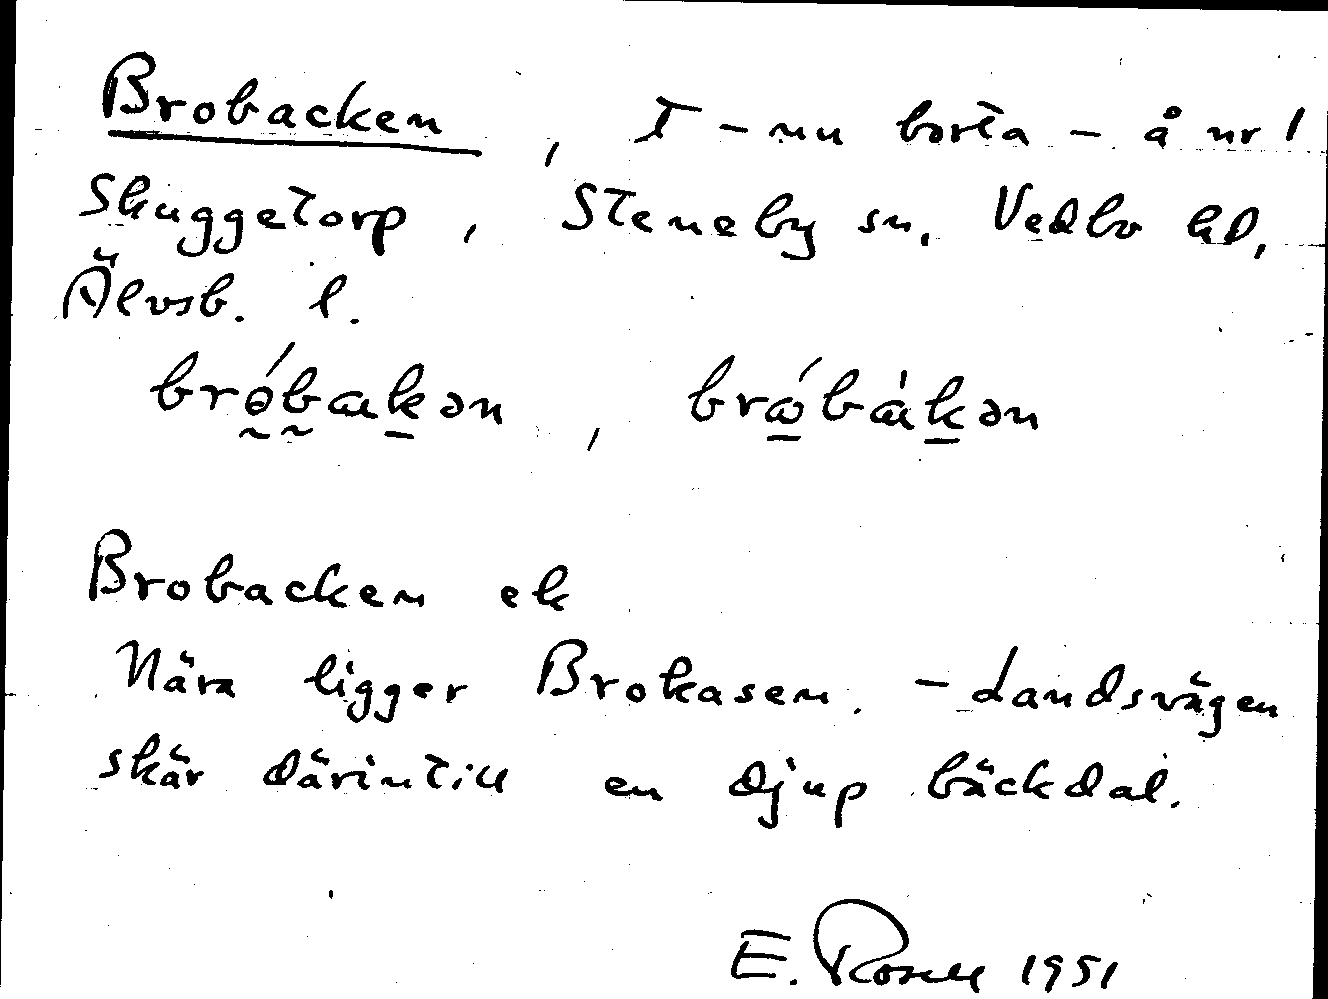 Brobacken, T – nu borta – å nr 1
Skuggetorp, Steneby sn, Vedbo hd,
Älvsb. l.
brǿbakən, brǻbàkən
Brobacken ek
Nära ligger Brokasen. – Landsvägen
skär därintill en djup bäckdal.
E. Rosell 1951